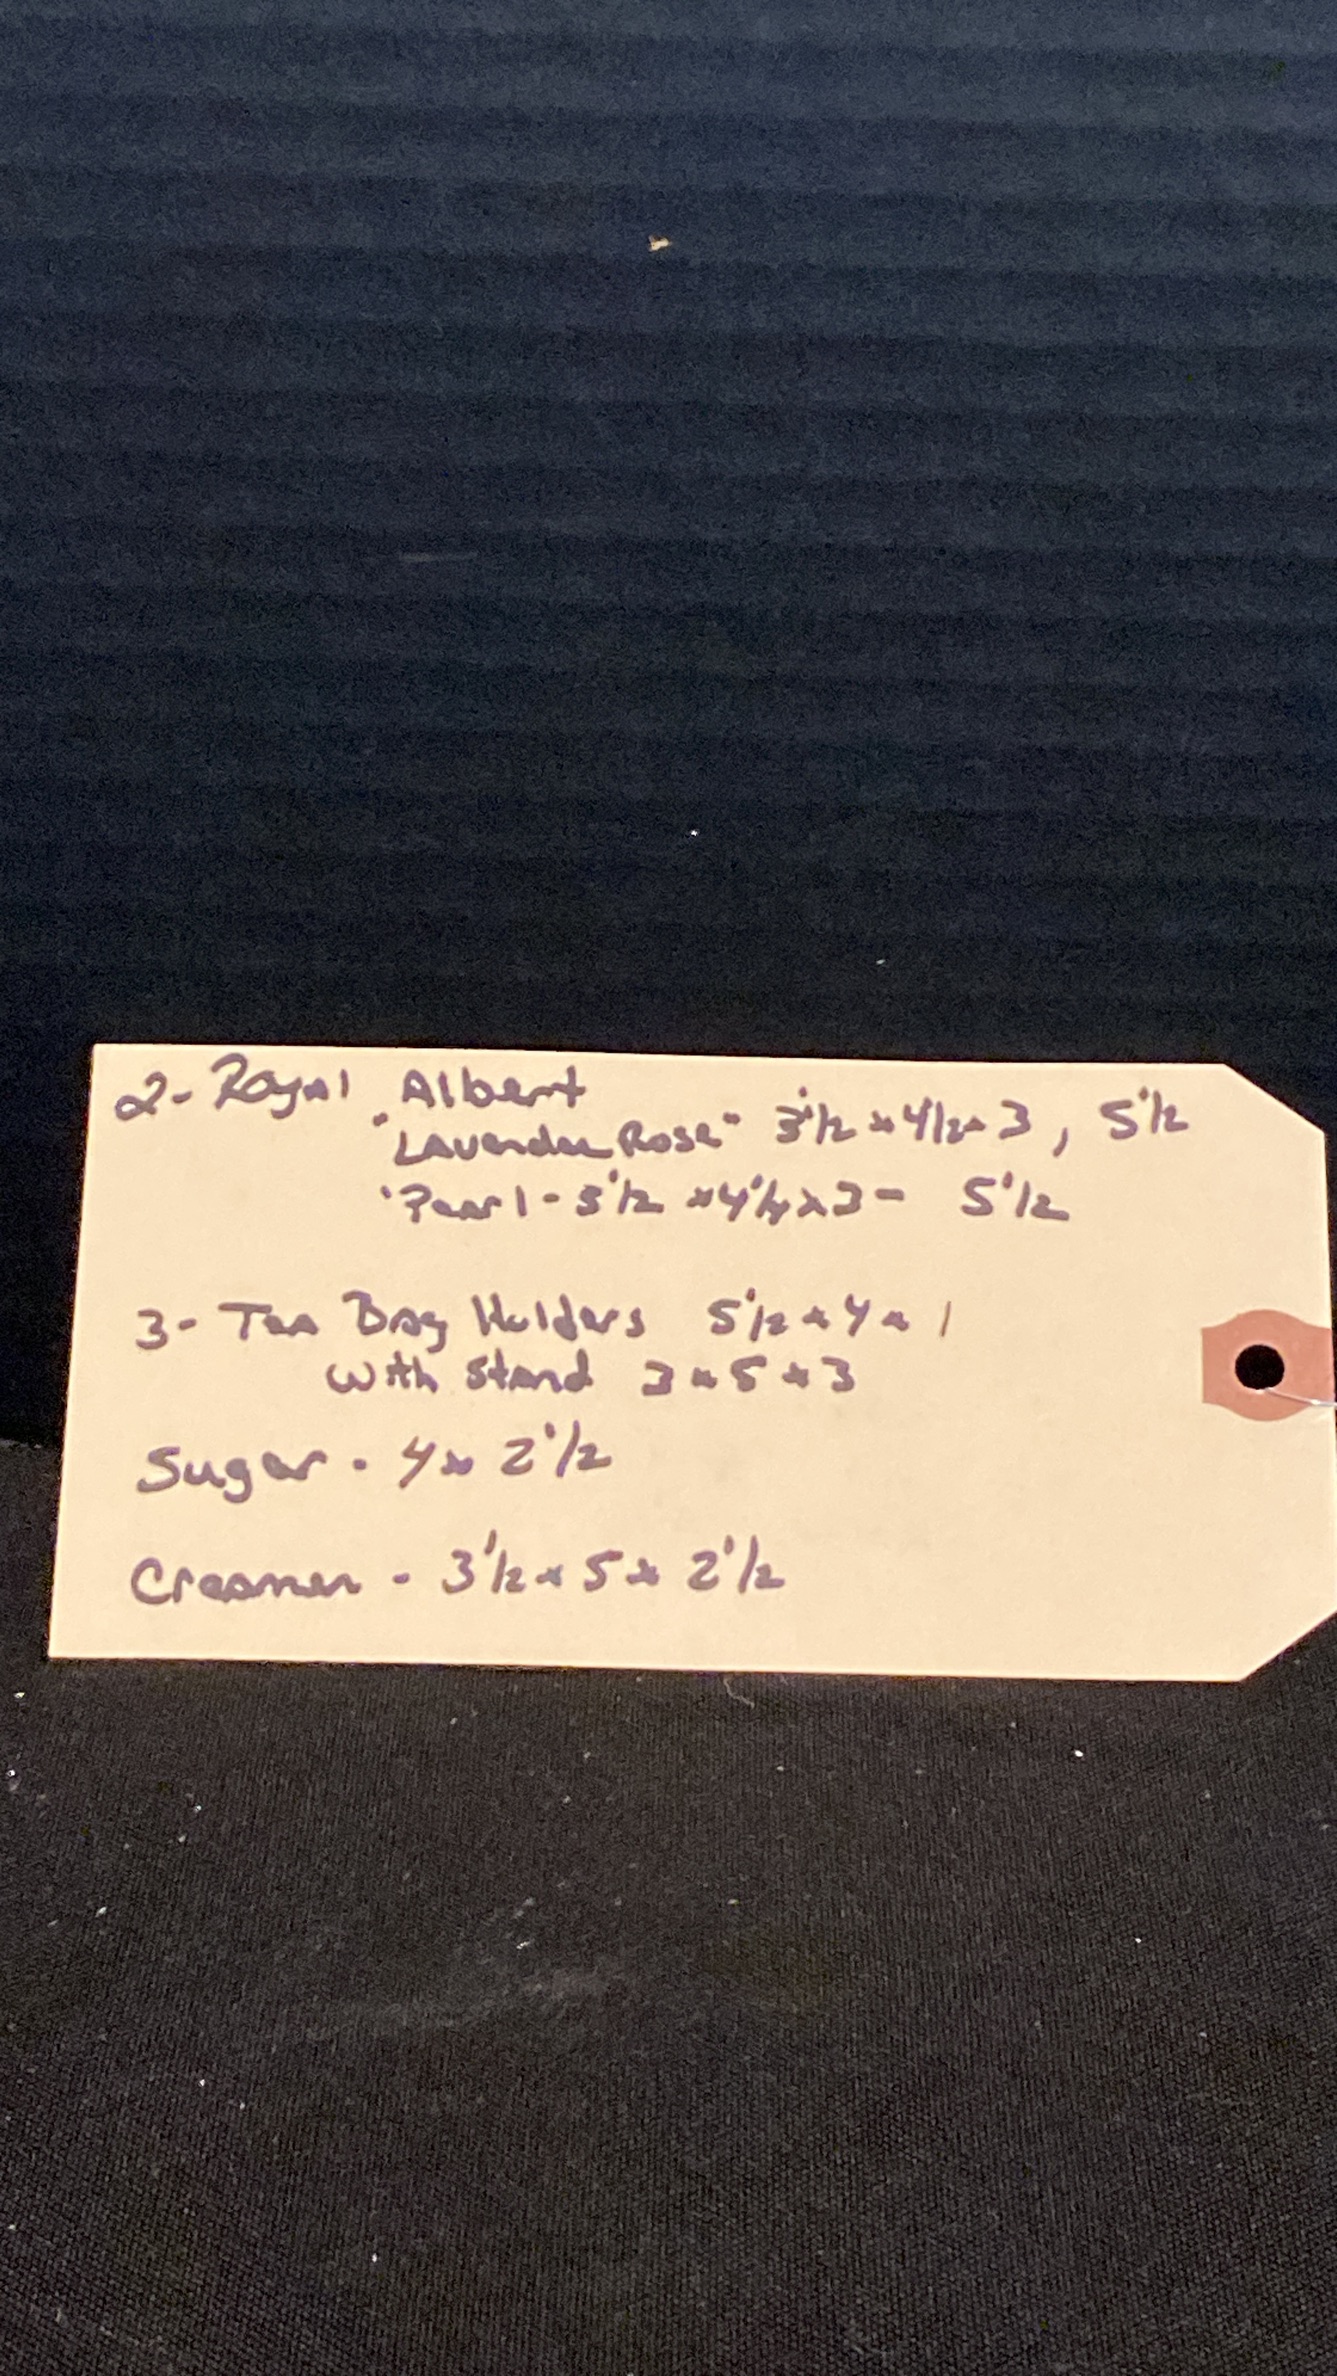 2- Royal Albert
"Lavender Rose" 3 1/2 x 4 1/2 x 3, 5 1/2
"Pearl - 3 1/2 x 4 1/4 x 3 - 5 1/2
3- Tea Bag Holders 5 1/2 x 4 x 1
with stand 3 x 5 x 3
Sugar - 4 x 2 1/2
Creamer - 3 1/2 x 5 x 2 1/2